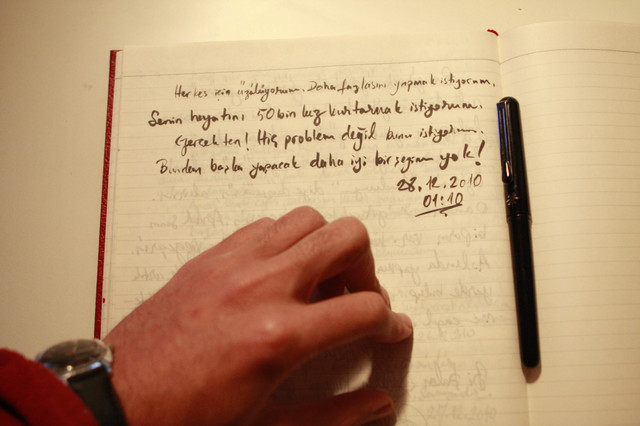 Herkes için üzülüyorum. Daha fazlasını yapmak istiyorum.
Senin hayatını 50 bin kez kurtarmak istiyorum.
Gerçekten! Hiç problem değil bunu istiyorum.
Bundan başka yapacak daha iyi bir şeyim yok!
28.12.2010
01:10